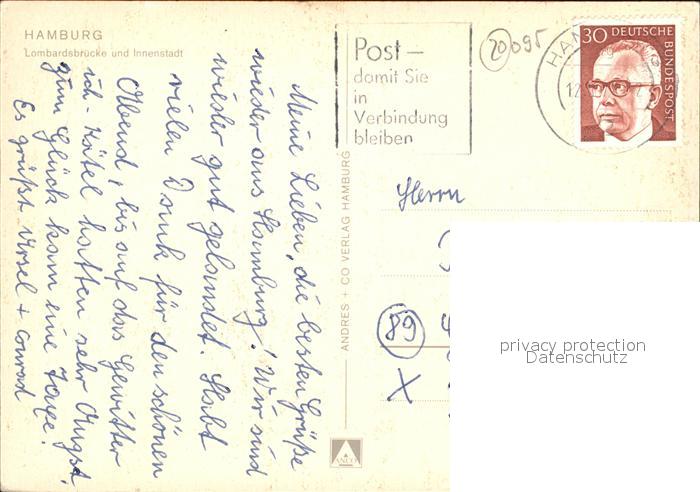 HAMBURG
Lombardsbrücke und Innenstadt
Meine Lieben, die besten Grüße
wieder aus Hamburg! Wir sind
wieder gut gelandet. Habt
vielen Dank für den schönen
Abend, bis auf das Gewitter
ich - Kätel hatten sehr Angst,
zum Glück kam eine Taxe!
Es grüßt Ursel + Conrad
ANDRES + CO VERLAG HAMBURG
ANCO
Post –
damit Sie
in
Verbindung
bleiben
20095
HAM
12.
30 DEUTSCHE
BUNDESPOST
Herrn
89
X
privacy protection
Datenschutz